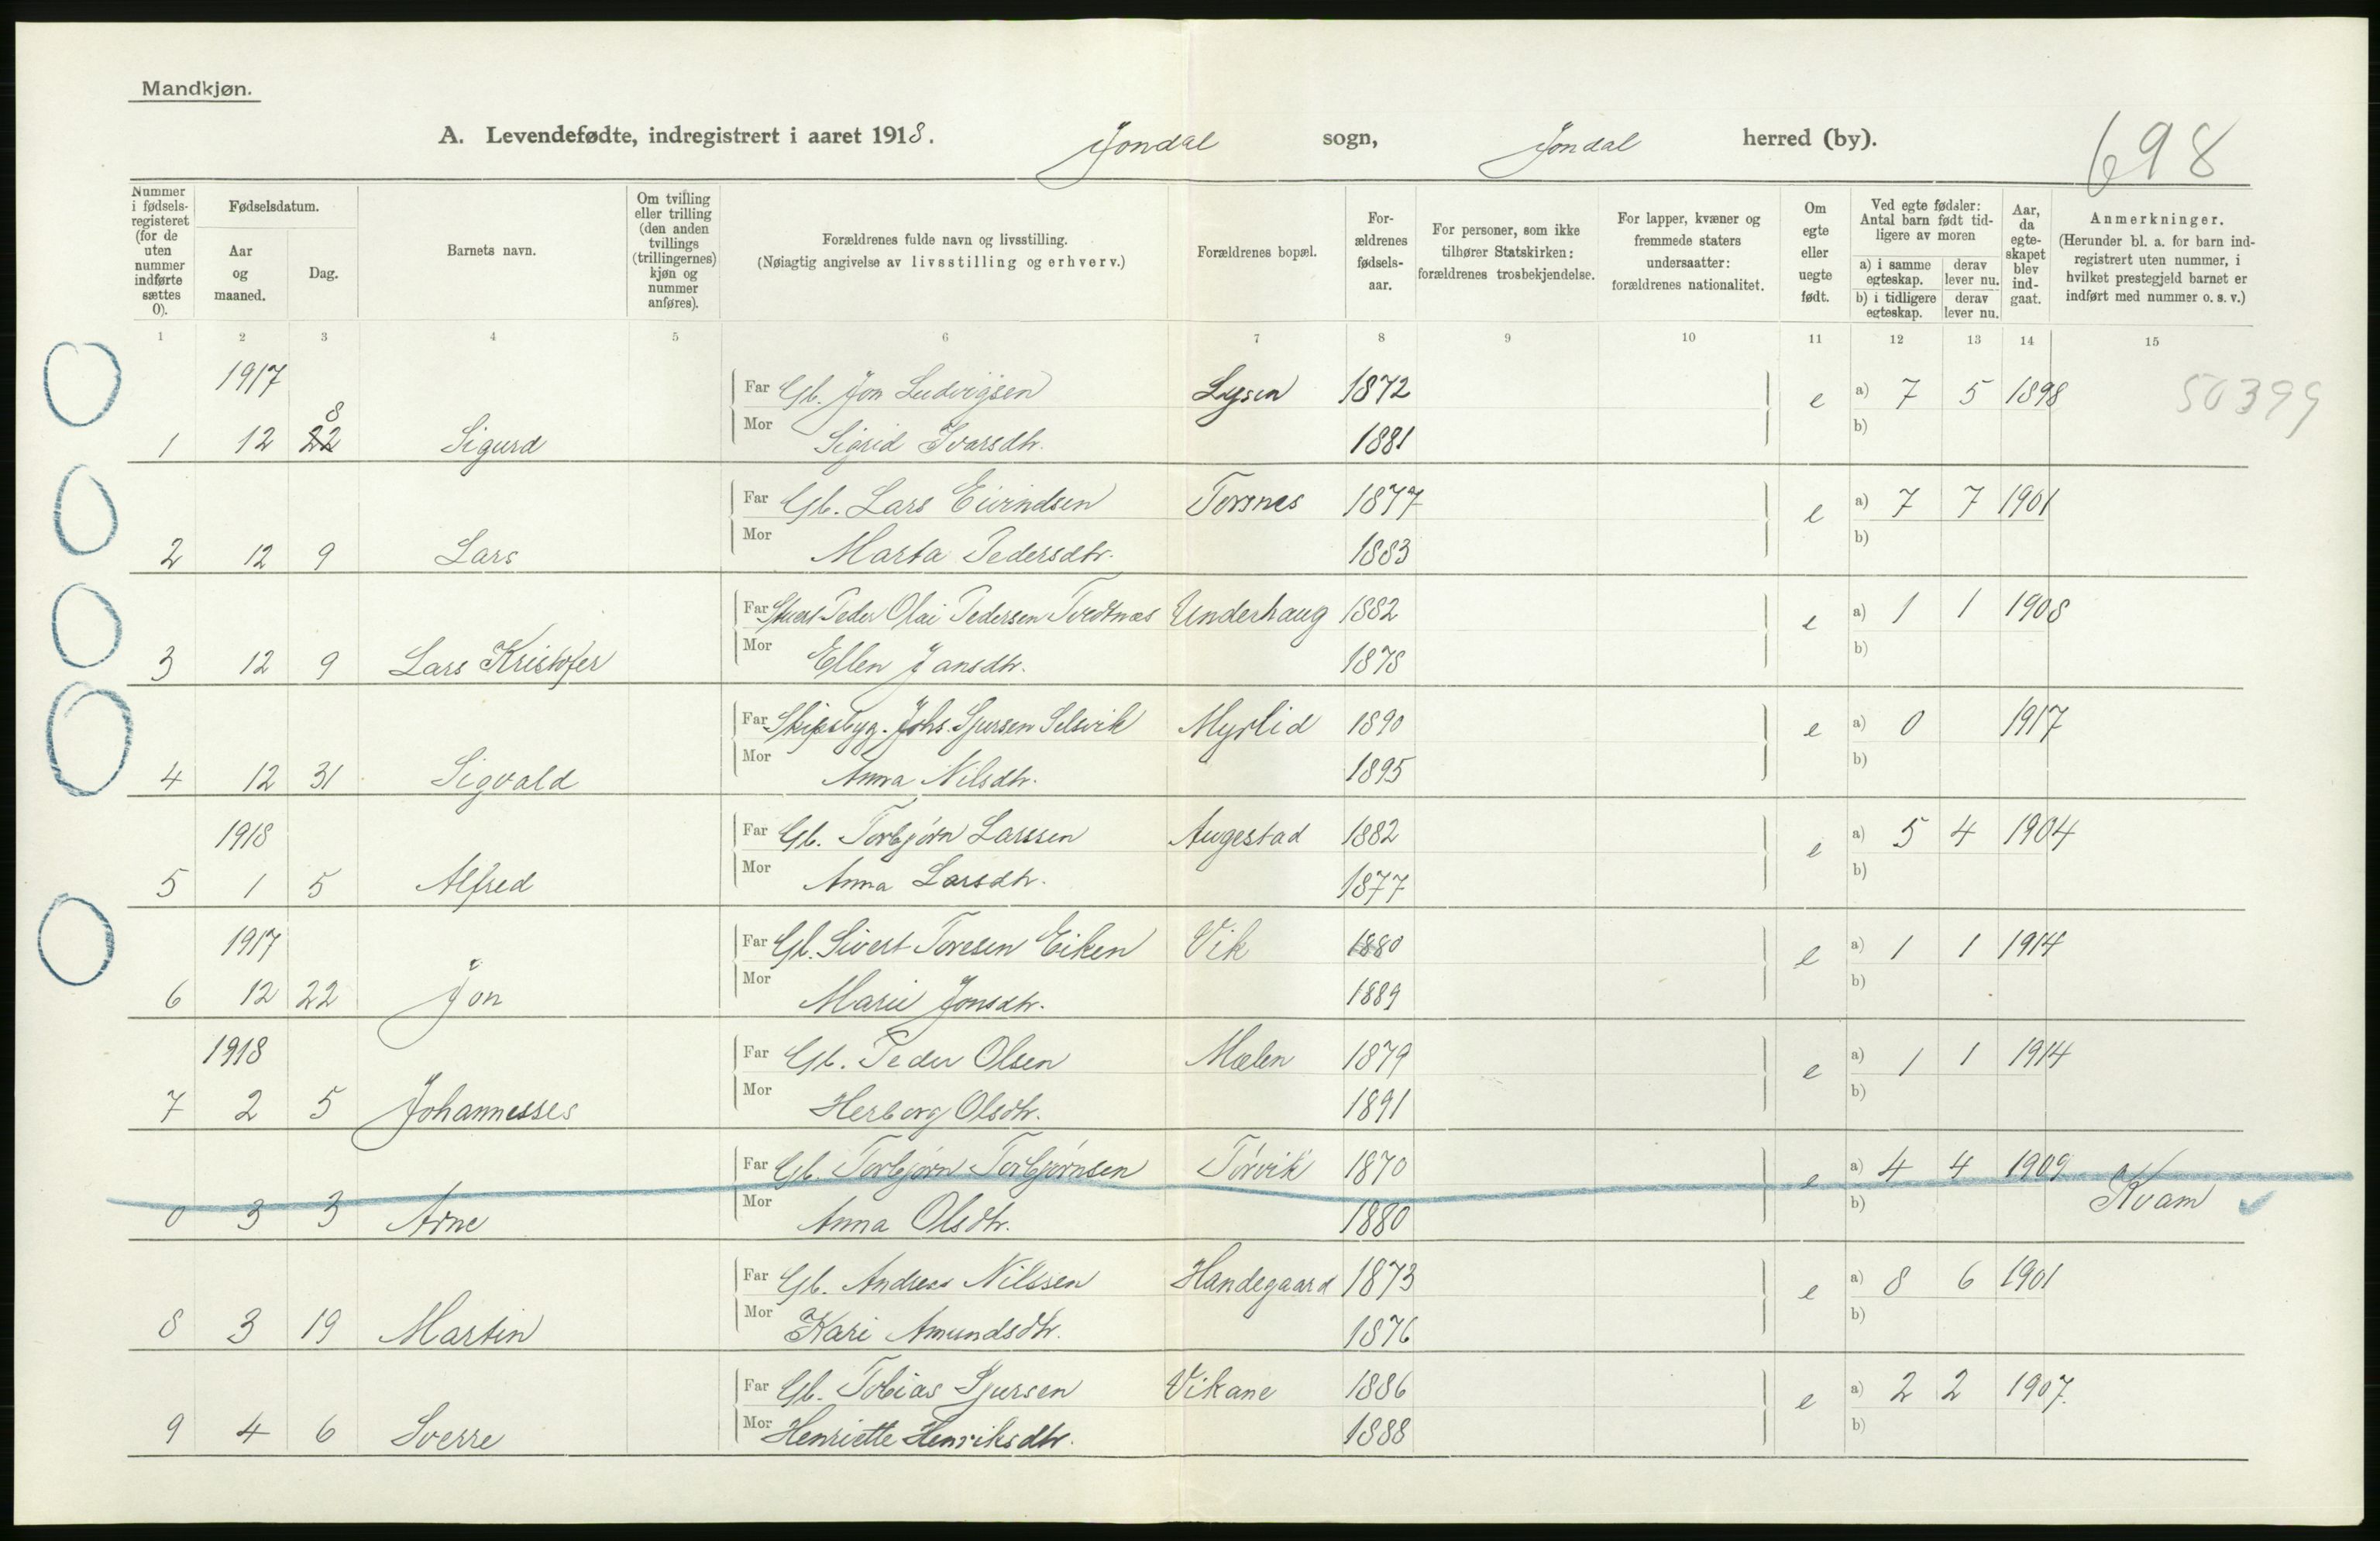 Mandkjøn.
A. Levendefødte, indregistrert i aaret 1918. Jondal sogn, Jondal herred (by). 698
Nummer i fødselsregisteret (for de uten nummer indførte sættes 0).
Fødselsdatum.
Aar og maaned.
Dag.
Barnets navn.
Om tvilling eller trilling (den anden tvillings (trillingernes) kjøn og nummer anføres).
Forældrenes fulde navn og livsstilling.
(Nøiagtig angivelse av livsstilling og erhverv.)
Forældrenes bopæl.
For-ældrenes fødsels-aar.
For personer, som ikke tilhører Statskirken: forældrenes trosbekjendelse.
For lapper, kvæner og fremmede staters undersaatter: forældrenes nationalitet.
Om egte eller uegte født.
Ved egte fødsler: Antal barn født tidligere av moren
a) i samme egteskap. derav lever nu.
b) i tidligere egteskap. derav lever nu.
Aar, da egteskapet blev indgaat.
Anmerkninger.
(Herunder bl. a. for barn indregistrert uten nummer, i hvilket prestegjeld barnet er indført med nummer o. s. v.)
1 2 3 4 5 6 7 8 9 10 11 12 13 14 15
1917 Far Gb. Jon Ludvigsen Lysen 1872 e a) 7 5 1898 50399
8
1 12 22 Sigurd Mor Sigrid Ivarsdtr. 1881 b)
Far Gb. Lars Eivindsen Torsnes 1877 e a) 7 7 1901
2 12 9 Lars Mor Marta Pedersdtr. 1883 b)
Far Peder Olai Pedersen Tvedtnæs Underhaug 1882 e a) 1 1 1908
3 12 9 Lars Kristofer Mor Ellen Jansdtr. 1878 b)
Far Skipsbyg. Johs. Sjursen Selsvik Myrlid 1890 e a) 0 1917
4 12 31 Sigvald Mor Anna Nilsdtr. 1895 b)
1918 Far Gb. Torbjørn Larssen Augestad 1882 e a) 5 4 1904
5 1 5 Alfred Mor Anna Larsdtr. 1877 b)
1917 Far Gb. Sivert Toresen Eiken Vik 1880 e a) 1 1 1914
6 12 22 Jon Mor Marie Jonsdtr. 1889 b)
1918 Far Gb. Peder Olsen Mælen 1879 e a) 1 1 1914
7 2 5 Johannesses Mor Herborg Olsdtr. 1891 b)
Far Gb. Torbjørn Torbjørnsen Tørvik 1870 e a) 4 4 1909
0 3 3 Arne Mor Anna Olsdtr. 1880 b) Kvam
Far Gb. Andreas Nilssen Handegaard 1873 e a) 8 6 1901
8 3 19 Martin Mor Kari Amundsdtr. 1876 b)
Far Gb. Tobias Sjursen Vikane 1886 e a) 2 2 1907.
9 4 6 Sverre Mor Henriette Henriksdtr. 1888 b)